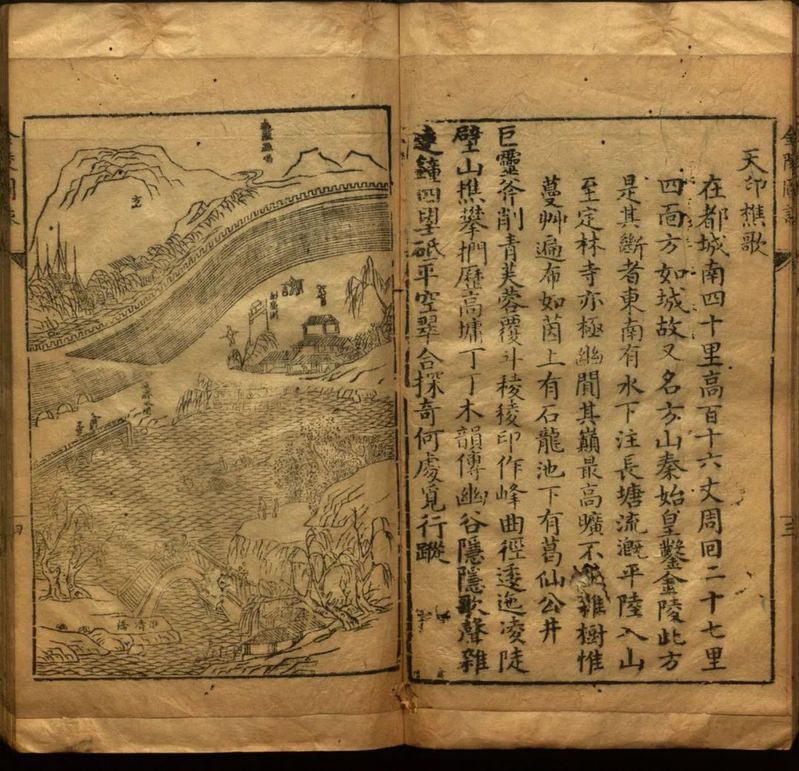 天印樵歌
在都城南四十里高百十六丈周回二十七里
四面方如城故又名方山秦始皇鑿金陵此方
是其斷者東南有水下注長塘流溉平陸入山
至定林寺亦極幽閒其巔最高曠不生雜樹惟
蔓艸遍布如茵上有石龍池下有葛仙公井
巨靈斧削青芙蓉覆斗稜稜印作峰曲徑逶迤凌陡
壁山樵攀捫歷高墉丁丁木韻傳幽谷隱隱歌聲雜
遠鐘四望砥平空翠合探奇何處覓行蹤